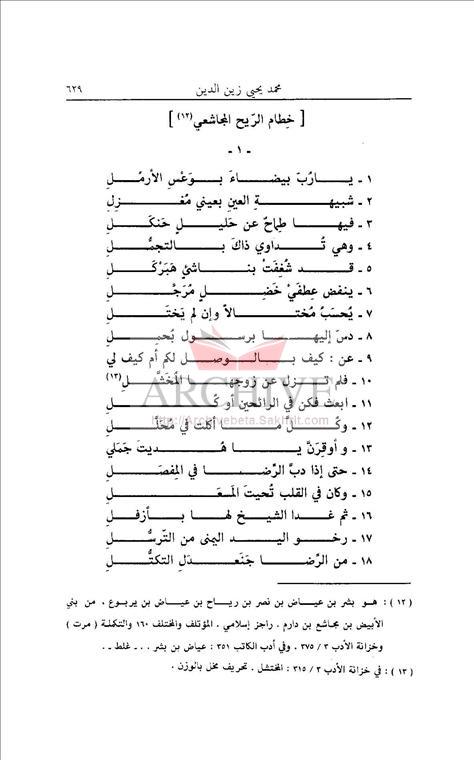 محمد يحيى زين الدين ٦٢٩
[ خِطام الرّيح المجاشعي (١٢) ]
- ١ -
١ - يــا رُبَ بيضــاءَ بــوَعْسِ الأرمُــلِ
٢ - شبيهــةِ العينِ بعيني مُغــزِلِ
٣ - فيهــا طِماحٌ عن حَليــلٍ حَنكَــلِ
٤ - وهي تُــداوي ذاكَ بــالتجمُّــلِ
٥ - قــد شُغِفَتْ بنــاشئٍ هَبَرْكَــلِ
٦ - ينفض عِطفَيْ خَضِــلٍ مُرَجَّــلِ
٧ - يُحسَبُ مُختــالاً وإن لم يَختَــلِ
٨ - دسّ إليهــا برســول مُجمِــلِ
٩ - عن : كيف بــالــوصــل لكم أم كيف لي
١٠ - فلم تــزل عن زوجهــا المُخَثَّــلِ (١٣)
١١ - ابعث فكن في الرائحين أو كُــلِ
١٢ - وكُــلُّ مــا أكلتَ في مُحَلَّــلِ
١٣ - و أوقِرَنَّ يــا هُــديتَ جَمَلي
١٤ - حتى إذا دبَّ الرِّضــا في المِفصَــلِ
١٥ - وكان في القلب تُحيتَ المَسعَــلِ
١٦ - ثم غــدا الشيــخ لهــا بــأزفــلِ
١٧ - رخــو اليــد اليمنى من التّرسُّــلِ
١٨ - من الرِّضــا جَنَعــدَلِ التكتُّــلِ
( ١٢ ) : هــو بشر بن عيــاض بن نصر بن ريــاح بن عيــاض بن يربــوع ، من بني
الأبيض بن مجاشع بن دارم . راجز إسلامي . المؤتلف والمختلف ١٦٠ والتكملة ( مرت )
وخزانة الأدب ٣ / ٣٧٥ . وفي أدب الكاتب ٣٥١ : عياض بن بشر . . . غلط . .
( ١٣ ) : في خزانة الأدب ٣ / ٣١٥ : المختشل . تحريف مخل بالوزن .
ARCHIVE
http://Archivebeta.Sakhrit.com